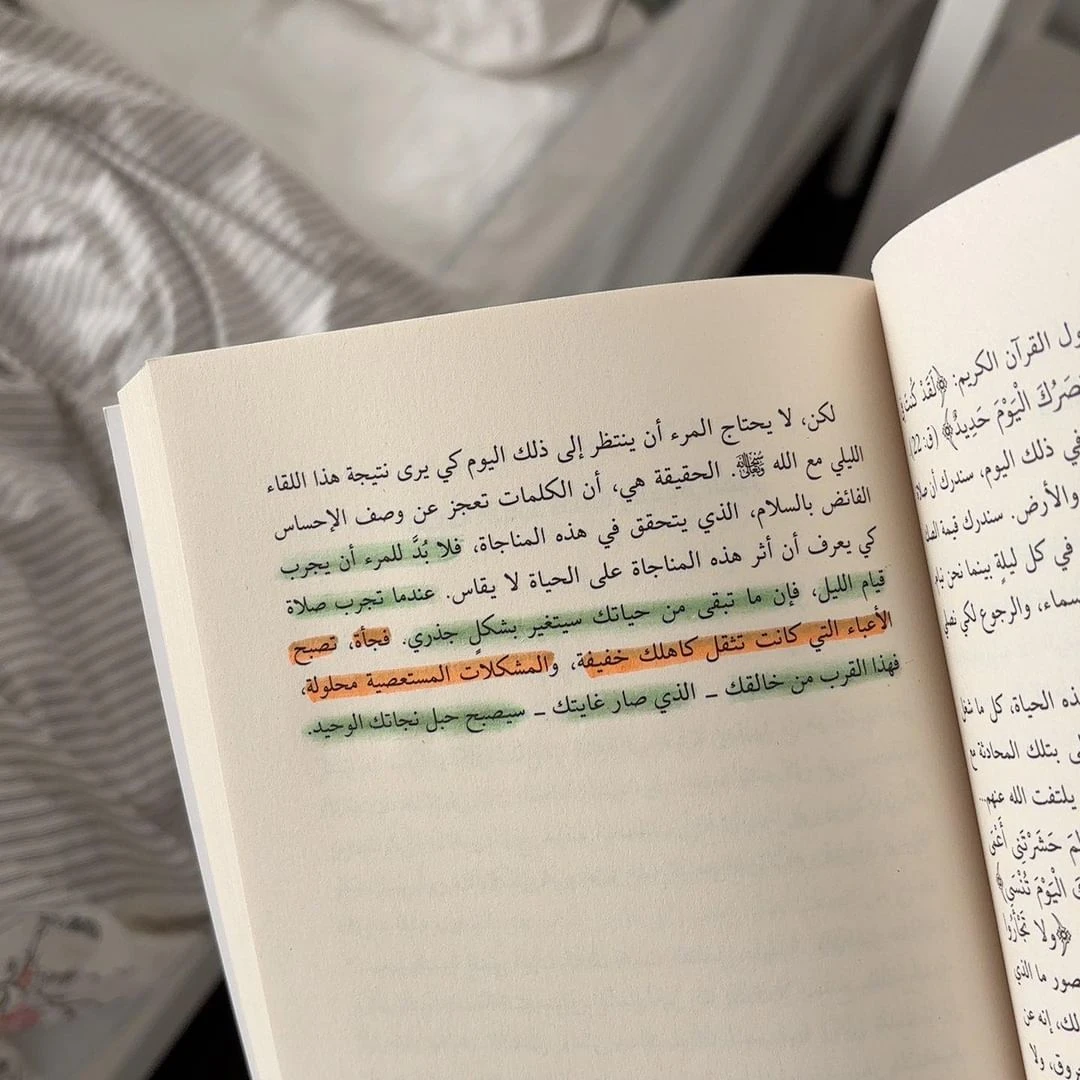 لكن، لا يحتاج المرء أن ينتظر إلى ذلك اليوم كي يرى نتيجة هذا اللقاء
الليلي مع الله ﷾. الحقيقة هي، أن الكلمات تعجز عن وصف الإحساس
الفائض بالسلام، الذي يتحقق في هذه المناجاة، فلا بُدَّ للمرء أن يجرب
كي يعرف أن أثر هذه المناجاة على الحياة لا يقاس. عندما تجرب صلاة
قيام الليل، فإن ما تبقى من حياتك سيتغير بشكلٍ جذري. فجأة، تصبح
الأعباء التي كانت تثقل كاهلك خفيفة، والمشكلات المستعصية محلولة،
فهذا القرب من خالقك – الذي صار غايتك – سيصبح حبل نجاتك الوحيد.
القرآن الكريم: ﴿لَقَدْ كُنتَ
الْيَوْمَ حَدِيدٌ﴾ (ق: 22)
في ذلك اليوم، سندرك أن
والأرض. سندرك قيمة
في كل ليلةٍ بينما نحن
والرجوع لكي
الحياة، كل ما
بتلك المحادثة مع
يلتفت الله عنهم...
حَشَرْتَنِي أَعْمَى
الْيَوْمَ تُنْسَى﴾
﴿ولا تَجْأَرُوا
ما الذي
إنه عن
ولا